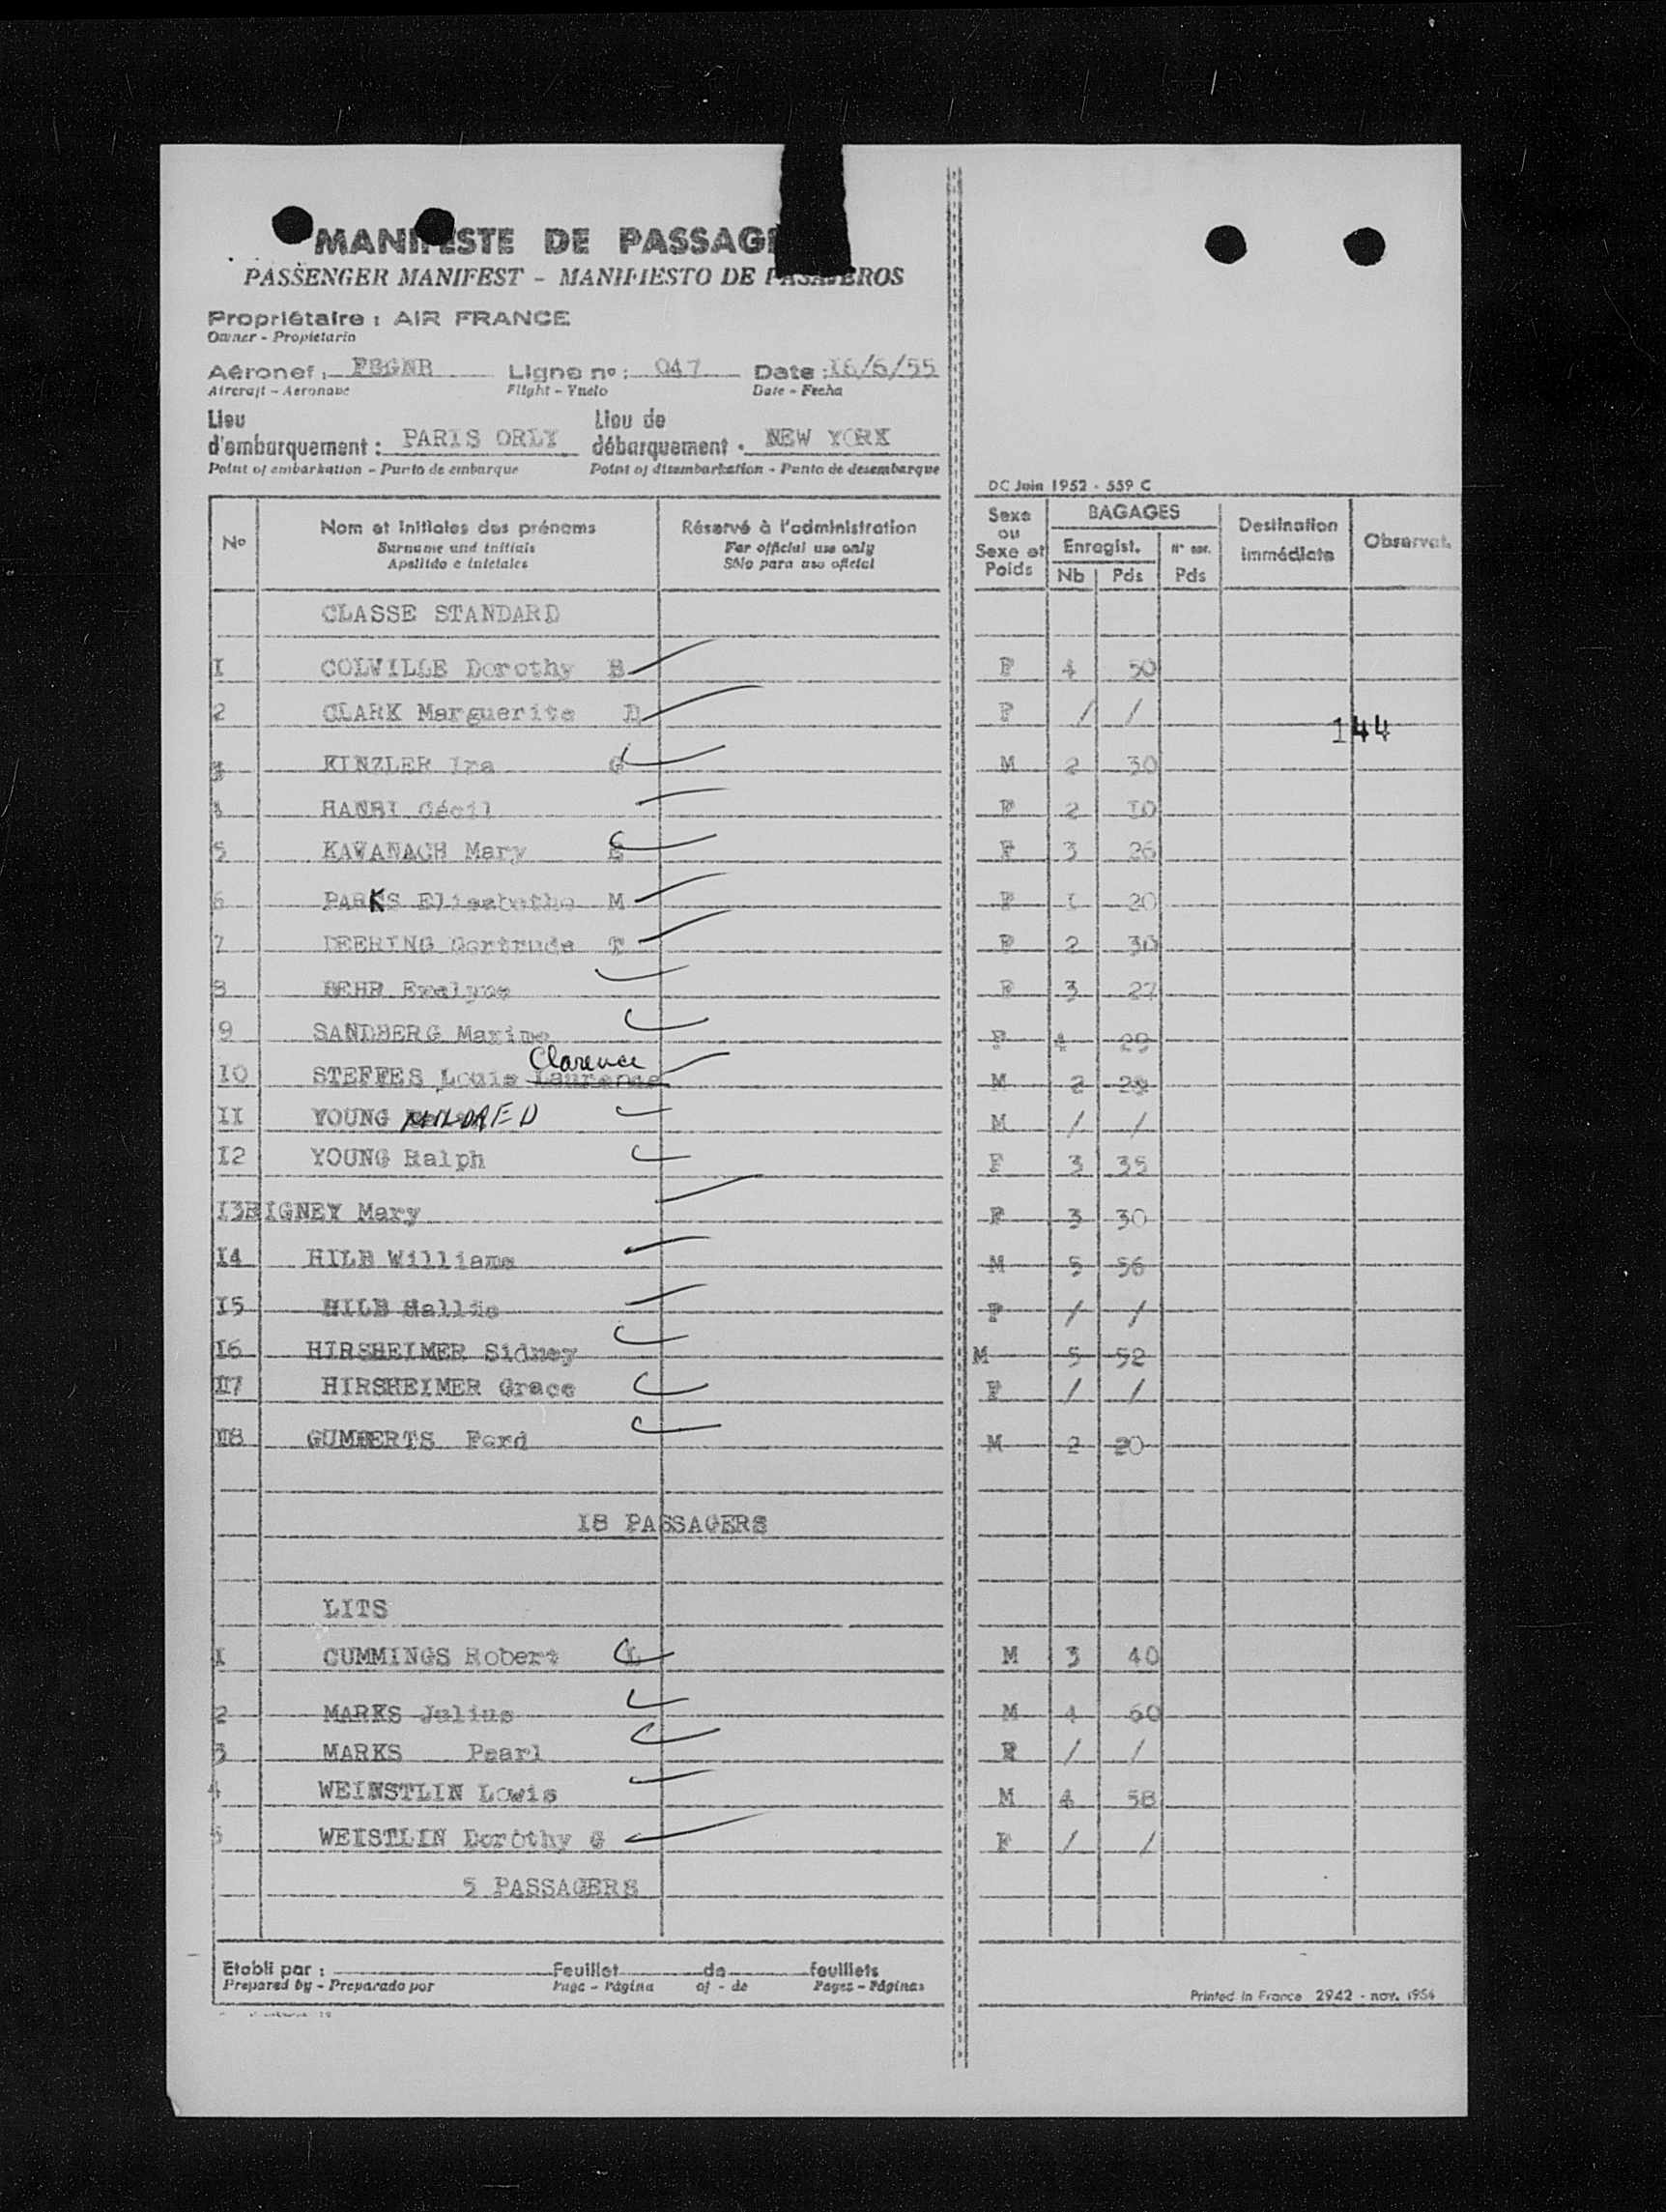 MANIFESTE DE PASSAG
PASSENGER MANIFEST - MANIFIESTO DE PASAJEROS
Propriétaire : AIR FRANCE
Owner - Propietario
Aéronef : FBGNB Ligne n° : 047 Date : 16/6/55
Aircraft - Aeronave Flight - Vuelo Date - Fecha
Lieu d'embarquement : PARIS ORLY Lieu de débarquement : NEW YORK
Point of embarkation - Punto de embarque Point of disembarkation - Punto de desembarque
DC Juin 1952 - 559 C
N° Nom et initiales des prénoms Réservé à l'administration Sexe ou Sexe et Poids BAGAGES Enregist. Nb Pds N° enr. Pds Destination immédiate Observat.
Surname and initials For official use only
Apellido e iniciales Sólo para uso oficial
CLASSE STANDARD
I COLVILLE Dorothy B F 4 50
2 CLARK Marguerite D F / /
144
3 KINZLER Ira G M 2 30
4 HANBI Cécil F 2 I0
5 KAVANAGH Mary E F 3 26
6 PARKS Elisabethe M F I 20
7 DEERING Gertrude T F 2 30
8 BEHR Evelyne F 3 27
9 SANDBERG Maxime F 4 29
Clarence
I0 STEFFES Louis Laurence M 2 28
II YOUNG MILDRED M / /
I2 YOUNG Ralph F 3 35
I3 RIGNEY Mary F 3 30
I4 HILB Williams M 5 56
I5 HILB Hallie F / /
I6 HIRSHEIMER Sidney M 5 52
I7 HIRSHEIMER Grace F / /
I8 GUMBERTS Ferd M 2 20
I8 PASSAGERS
LITS
I CUMMINGS Robert L M 3 40
2 MARKS Julius M 4 60
3 MARKS Pearl F / /
4 WEINSTLIN Lowis M 4 58
5 WEISTLIN Dorothy G F / /
5 PASSAGERS
Etabli par : Feuillet de feuillets
Prepared by - Preparado por Page - Página of - de Pages - Páginas
Printed in France 2942 - nov. 1954